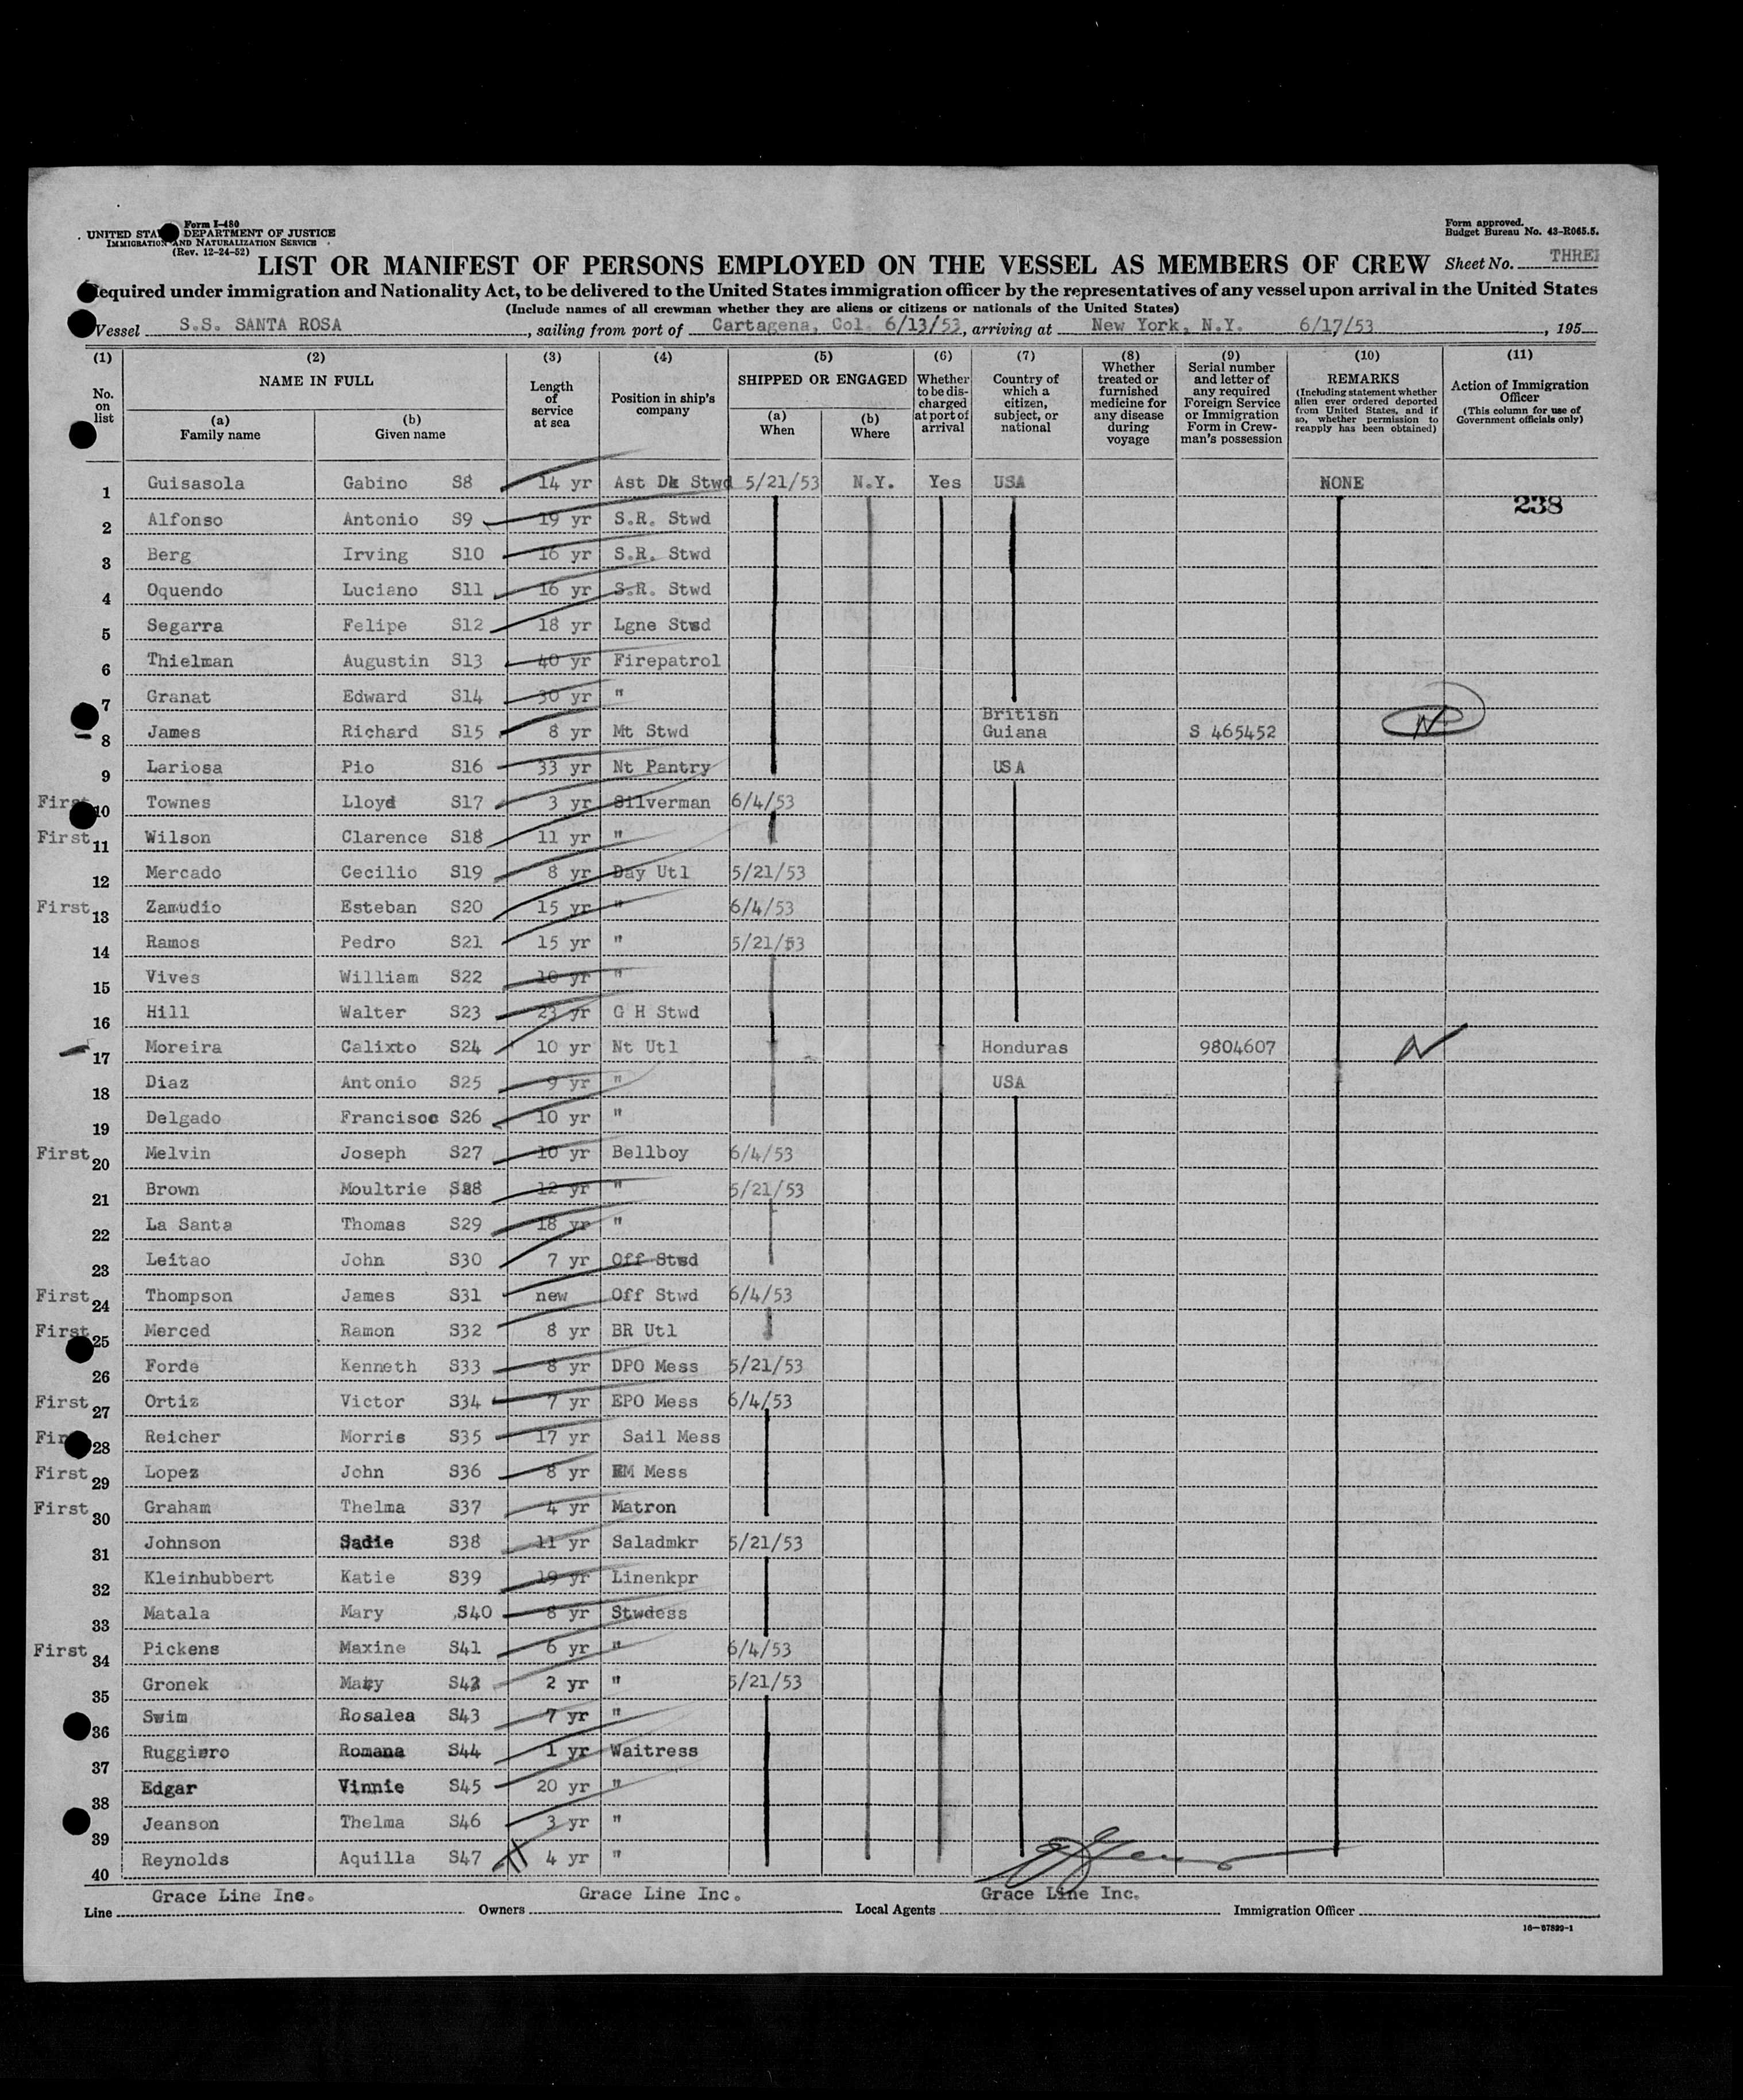 Form I-480
UNITED STA DEPARTMENT OF JUSTICE
IMMIGRATION AND NATURALIZATION SERVICE
(Rev. 12-24-52)
Form approved.
Budget Bureau No. 43-R065.5.
LIST OR MANIFEST OF PERSONS EMPLOYED ON THE VESSEL AS MEMBERS OF CREW Sheet No. THREE
Required under immigration and Nationality Act, to be delivered to the United States immigration officer by the representatives of any vessel upon arrival in the United States
(Include names of all crewman whether they are aliens or citizens or nationals of the United States)
Vessel S.S. SANTA ROSA, sailing from port of Cartagena, Col. 6/13/53, arriving at New York, N.Y. 6/17/53, 195
(1) No. on list
(2) NAME IN FULL
(a) Family name
(b) Given name
(3) Length of service at sea
(4) Position in ship's company
(5) SHIPPED OR ENGAGED
(a) When
(b) Where
(6) Whether to be discharged at port of arrival
(7) Country of which a citizen, subject, or national
(8) Whether treated or furnished medicine for any disease during voyage
(9) Serial number and letter of any required Foreign Service or Immigration Form in Crewman's possession
(10) REMARKS (Including statement whether alien ever ordered deported from United States, and if so, whether permission to reapply has been obtained)
(11) Action of Immigration Officer (This column for use of Government officials only)
1 Guisasola Gabino S8 14 yr Ast Dk Stwd 5/21/53 N.Y. Yes USA NONE
238
2 Alfonso Antonio S9 19 yr S.R. Stwd
3 Berg Irving S10 16 yr S.R. Stwd
4 Oquendo Luciano S11 16 yr S.R. Stwd
5 Segarra Felipe S12 18 yr Lgne Stwd
6 Thielman Augustin S13 40 yr Firepatrol
7 Granat Edward S14 30 yr "
8 James Richard S15 8 yr Mt Stwd British Guiana S 465452
9 Lariosa Pio S16 33 yr Nt Pantry USA
First 10 Townes Lloyd S17 3 yr Silverman 6/4/53
First 11 Wilson Clarence S18 11 yr "
12 Mercado Cecilio S19 8 yr Day Utl 5/21/53
First 13 Zamudio Esteban S20 15 yr " 6/4/53
14 Ramos Pedro S21 15 yr " 5/21/53
15 Vives William S22 10 yr "
16 Hill Walter S23 23 yr G H Stwd
17 Moreira Calixto S24 10 yr Nt Utl Honduras 9804607
18 Diaz Antonio S25 9 yr " USA
19 Delgado Francisco S26 10 yr "
First 20 Melvin Joseph S27 10 yr Bellboy 6/4/53
21 Brown Moultrie S28 12 yr " 5/21/53
22 La Santa Thomas S29 18 yr "
23 Leitao John S30 7 yr Off Stwd
First 24 Thompson James S31 new Off Stwd 6/4/53
First 25 Merced Ramon S32 8 yr BR Utl
26 Forde Kenneth S33 8 yr DPO Mess 5/21/53
First 27 Ortiz Victor S34 7 yr EPO Mess 6/4/53
First 28 Reicher Morris S35 17 yr Sail Mess
First 29 Lopez John S36 8 yr EM Mess
First 30 Graham Thelma S37 4 yr Matron
31 Johnson Sadie S38 11 yr Saladmkr 5/21/53
32 Kleinhubbert Katie S39 19 yr Linenkpr
33 Matala Mary S40 8 yr Stwdess
First 34 Pickens Maxine S41 6 yr " 6/4/53
35 Gronek Mary S42 2 yr " 5/21/53
36 Swim Rosalea S43 7 yr "
37 Ruggiero Romana S44 1 yr Waitress
38 Edgar Vinnie S45 20 yr "
39 Jeanson Thelma S46 3 yr "
40 Reynolds Aquilla S47 4 yr "
Line Grace Line Inc. Owners Grace Line Inc. Local Agents Grace Line Inc. Immigration Officer
16—67899-1